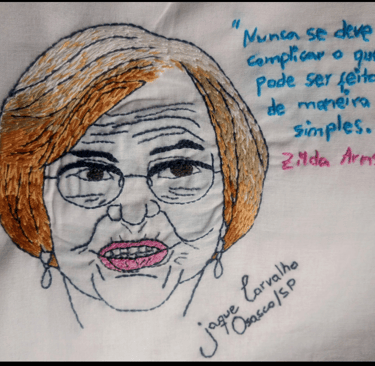 "Nunca se deve
complicar o que
pode ser feito
de maneira
simples.
Zilda Arns
jaque Carvalho
Osasco/SP